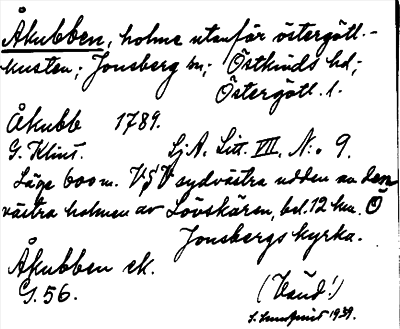 Åkubben, holme utanför östergötl.-
kusten; Jonsberg sn; Östkinds hd;
Östergötl. l.
Åkubb 1789.
G. Klint. Sj.A. Litt. VII, N:o 9.
Läge 600 m. VSV sydvästra udden av den
västra holmen av Lövskären, bel. 12 km. O
Jonsbergs kyrka.
Åkubben ek.
G. 56. (Vänd!)
1939.